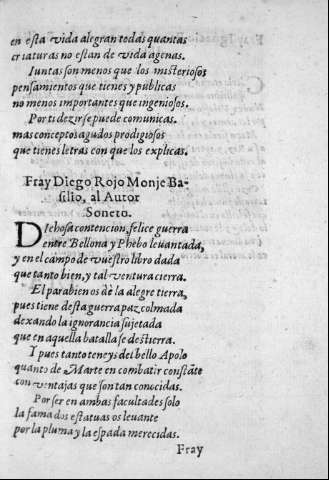 en esta vida alegran todas quantas
criaturas no estan de vida agenas.
Iuntas son menos que los misteriosos
pensamientos que tienes y publicas
no menos importantes que ingeniosos.
Por ti dezirse puede comunicas.
mas conceptos agudos prodigiosos
que tienes letras con que los explicas.
Fray Diego Rojo Monje Ba-
silio, al Autor
Soneto.
Dichosa contencion, felice guerra
entre Bellona y Phebo leuantada,
y en el campo de vuestro libro dada
que tanto bien, y tal ventura cierra.
El parabien os de la alegre tierra,
pues tiene desta guerra paz colmada
dexando la ignorancia sujetada
que en aquella batalla se destierra.
Y pues tanto teneys del bello Apolo
quanto de Marte en combatir constãte
con ventajas que son tan conocidas.
Por ser en ambas facultades solo
la fama dos estatuas os leuante
por la pluma y la espada merecidas.
Fray